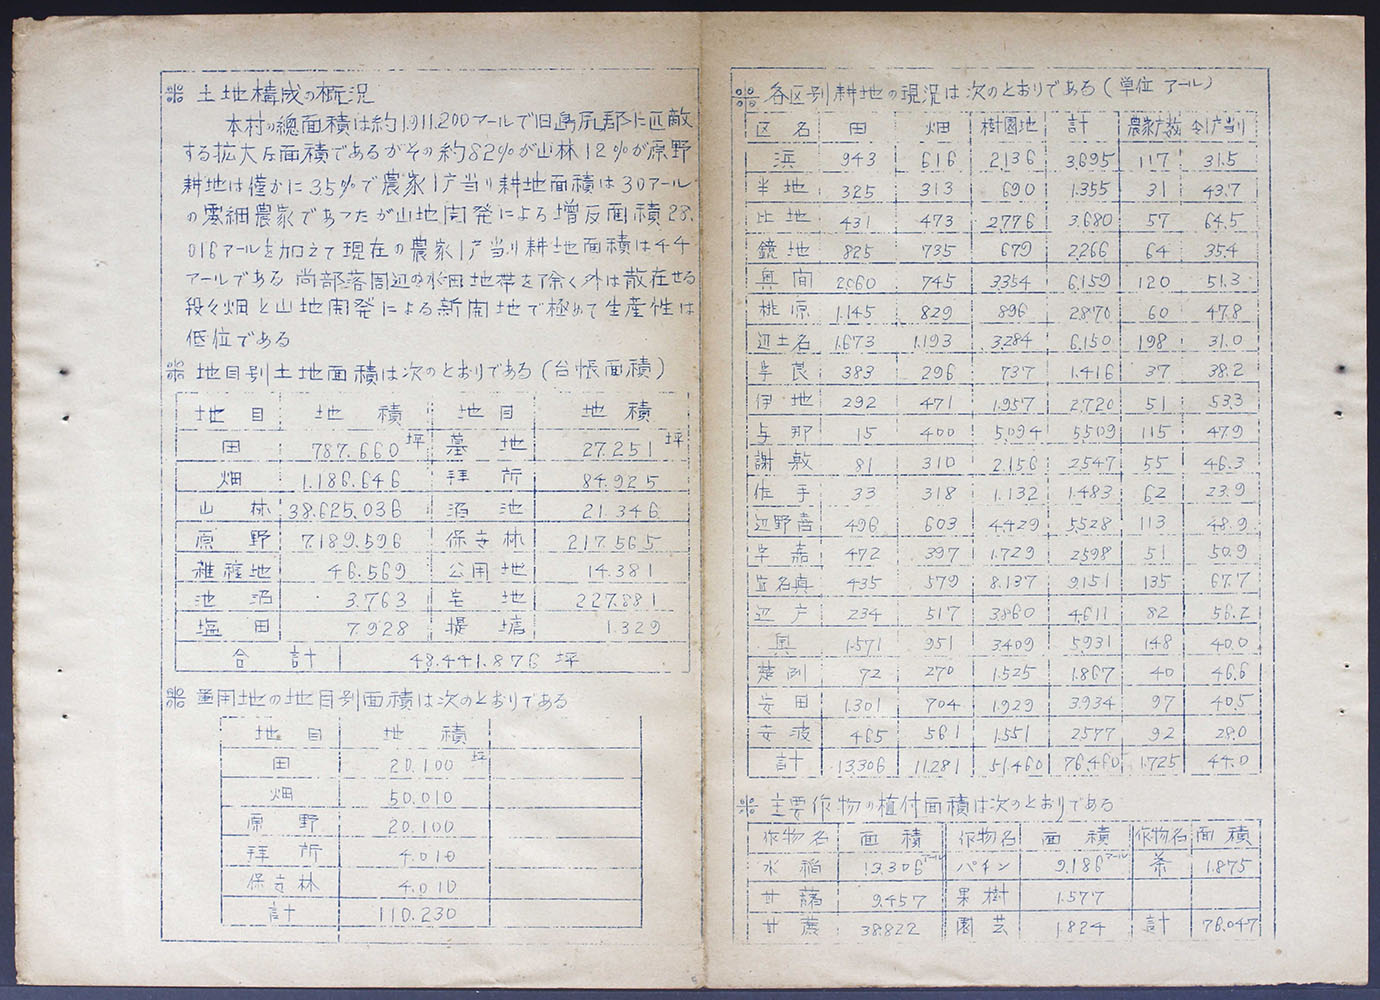 ※ 土地構成の概況
本村の總面積は約1911.200アールで旧島尻郡に匹敵
する拡大な面積であるがその約82%が山林12%が原野
耕地は僅かに35%で農家1戸当り耕地面積は30アール
の零細農家であつたが山地開発による増反面積28.
016アールを加えて現在の農家1戸当り耕地面積は44
アールである 尚部落周辺の水田地帯を除く外は散在せる
段々畑と山地開発による新開地で極めて生産性は
低位である
※ 地目別土地面積は次のとおりである(台帳面積)
地目 地積 地目 地積
田 787.660坪 墓地 27.251坪
畑 1.186.646 拝所 84.925
山林 38.625.036 沼池 21.346
原野 7.189.596 保安林 217.565
雑種地 46.569 公用地 14.381
池沼 3.763 宅地 227.881
塩田 7.928 堤塘 1.329
合計 48.441.876坪
※ 軍用地の地目別面積は次のとおりである
地目 地積
田 20.100坪
畑 50.010
原野 20.100
拝所 4.010
保安林 4.010
計 110.230
※ 各区別耕地の現況は次のとおりである(単位 アール)
区名 田 畑 樹園地 計 農家戸数 全1戸当り
浜 943 616 2.136 3.695 117 31.5
半地 325 313 690 1.355 31 43.7
比地 431 473 2.776 3.680 57 64.5
鏡地 825 735 679 2.266 64 35.4
奥間 2.060 745 3.354 6.159 120 51.3
桃原 1.145 829 896 2.870 60 47.8
辺土名 1.673 1.193 3.284 6.150 198 31.0
宇良 383 296 737 1.416 37 38.2
伊地 292 471 1.957 2.720 51 53.3
与那 15 400 5.094 5.509 115 47.9
謝敷 81 310 2.156 2.547 55 46.3
佐手 33 318 1.132 1.483 62 23.9
辺野喜 496 603 4.429 5.528 113 48.9
宇嘉 472 397 1.729 2.598 51 50.9
宜名真 435 579 8.137 9.151 135 67.7
辺戸 234 517 3.860 4.611 82 56.2
奥 1.571 951 3.409 5.931 148 40.0
楚洲 72 270 1.525 1.867 40 46.6
安田 1.301 704 1.929 3.934 97 40.5
安波 465 561 1.551 2.577 92 28.0
計 13.306 11.281 51.460 76.460 1.725 44.0
※ 主要作物の植付面積は次のとおりである
作物名 面積 作物名 面積 作物名 面積
水稲 13.306アール パイン 9.186アール 茶 1.875
甘藷 9.457 果樹 1.577
甘蔗 38.822 園芸 1.824 計 76.047